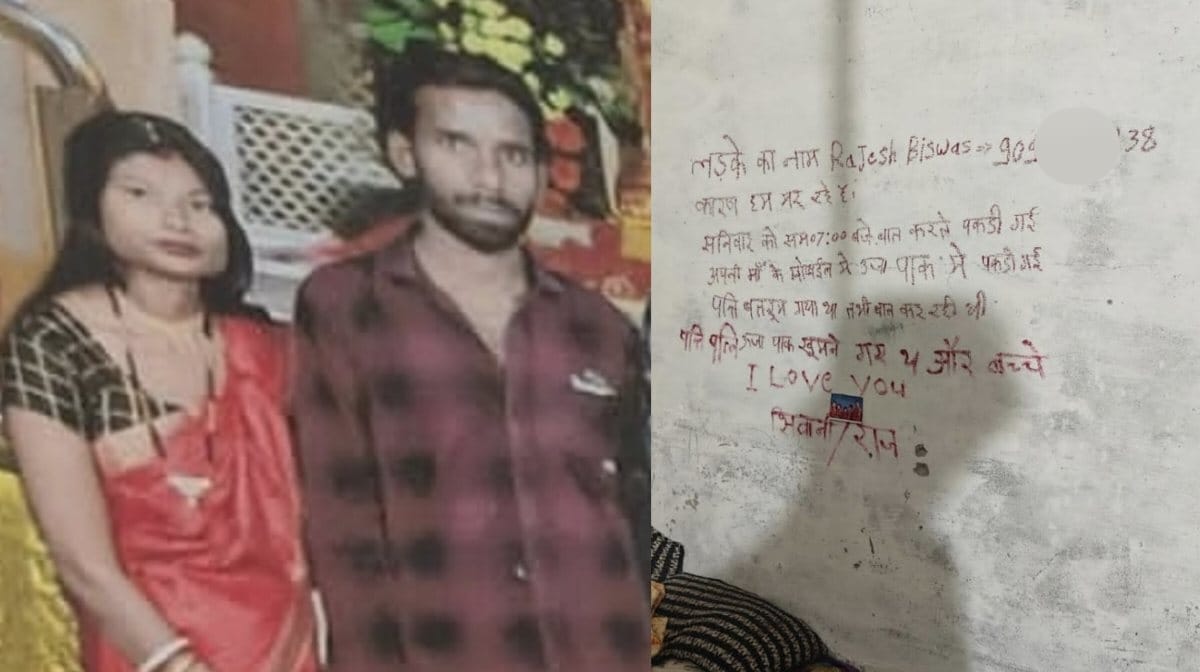 लड़के का नाम Rajesh Biswas => 909 38
कारण हम मर रहे है।
सनिवार को सम07:00 बजे बात करते पकडी गई
अपनी माँ के मोबाईल मे ऊर्जा पाक मे पकडी गई
पति बातरूम गया था तभी बात कर रही थी
पति पत्नि ऊर्जा पाक घूमने गए थे और बच्चे
I Love You
शिवानी/राज